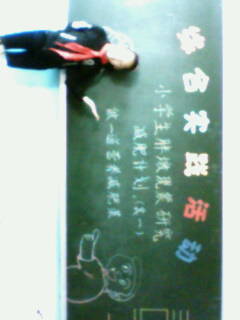 综合实践活动
小学生肥胖现象研究
减肥计划(之一)
做一道营养减肥菜